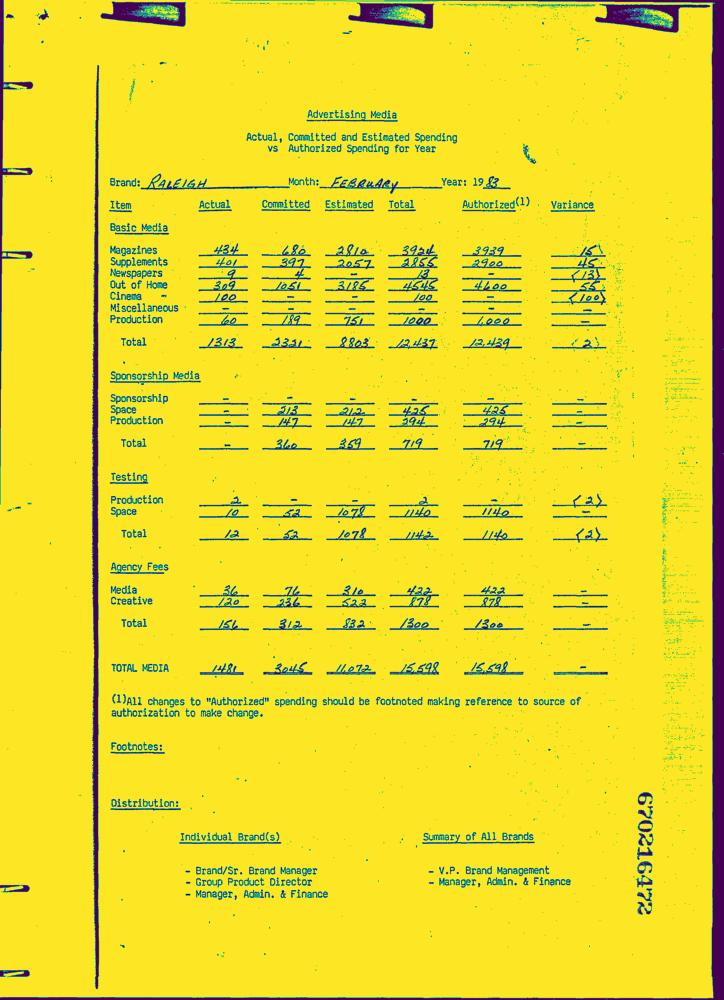 Advertising Media
Actual, Committed and Estimated Spending
vs Authorized Spending for Year
Brand: RALEIGH Month: FEBRUARY Year: 19 83
Item Actual Committed Estimated Total Authorized(1) Variance
Basic Media
Magazines 434 680 2810 3924 3939 15
Supplements 401 397 2057 2855 2900 45
Newspapers 9 4 - 13 - (13)
Out of Home 309 1051 3185 4545 4600 55
Cinema - 100 - - 100 - (100)
Miscellaneous - - - - - -
Production 60 189 751 1000 1,000 -
Total 1313 2321 8803 12,437 12,439 (2)
Sponsorship Media
Sponsorship - - - - - -
Space - 213 212 425 425 -
Production - 147 147 294 294 -
Total - 360 359 719 719 -
Testing
Production 2 - - 2 - (2)
Space 10 52 1078 1140 1140 -
Total 12 52 1078 1142 1140 (2)
Agency Fees
Media 36 76 310 422 422 -
Creative 120 236 522 878 878 -
Total 156 312 832 1300 1300 -
TOTAL MEDIA 1481 3045 11,072 15,598 15,598 -
(1)All changes to "Authorized" spending should be footnoted making reference to source of
authorization to make change.
Footnotes:
Distribution:
Individual Brand(s) Summary of All Brands
- Brand/Sr. Brand Manager - V.P. Brand Management
- Group Product Director - Manager, Admin. & Finance
- Manager, Admin. & Finance
670216472